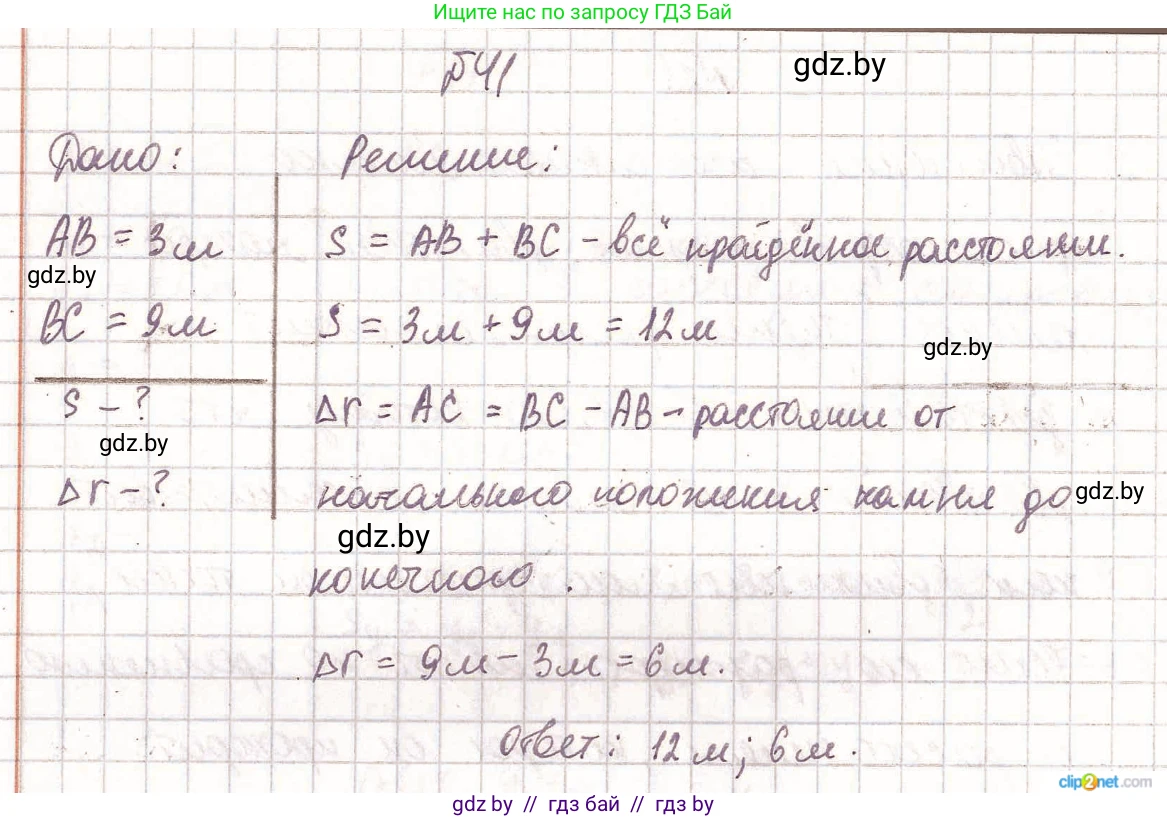 Ищите нас по запросу ГДЗ Бай
№41
gdz.by
Дано:
Решение:
AB = 3 м
S = AB + BC - всё пройдённое расстояние.
gdz.by
BC = 9 м
S = 3 м + 9 м = 12 м
gdz.by
S - ?
Δr = AC = BC - AB - расстояние от
gdz.by
Δr - ?
начального положения камня до
gdz.by
gdz.by
конечного.
Δr = 9 м - 3 м = 6 м.
Ответ: 12 м; 6 м.
clip2net.com
gdz by // гдз бай // гдз by